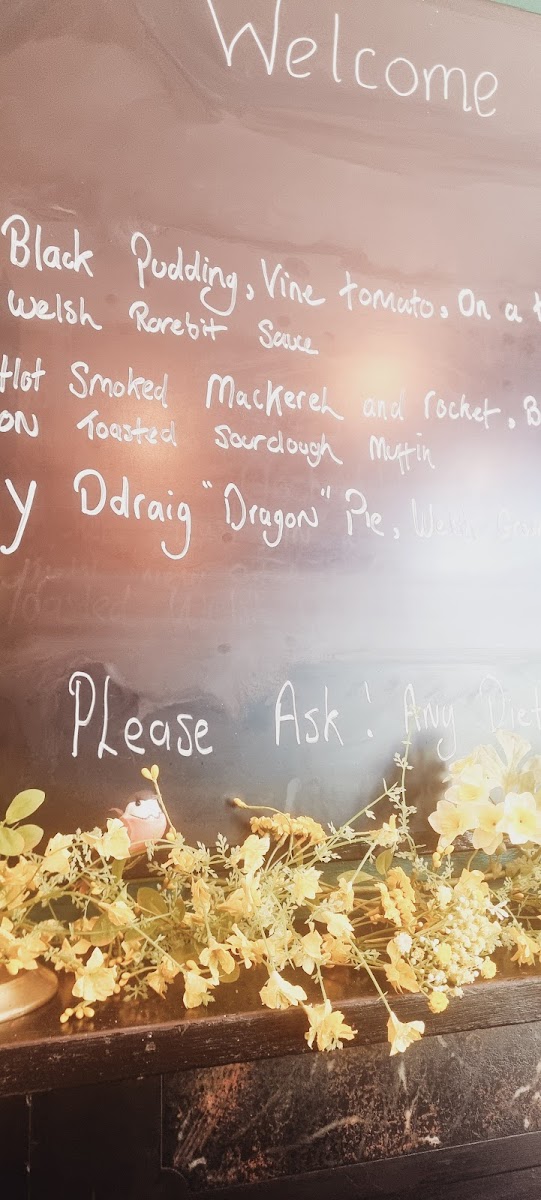 Welcome
Black Pudding, Vine tomato, On a
Welsh Rarebit Sauce
Hot Smoked Mackerel and rocket, B
ON Toasted Sourdough Muffin
y Ddraig "Dragon" Pie, Welsh
PLease Ask! Any Diet